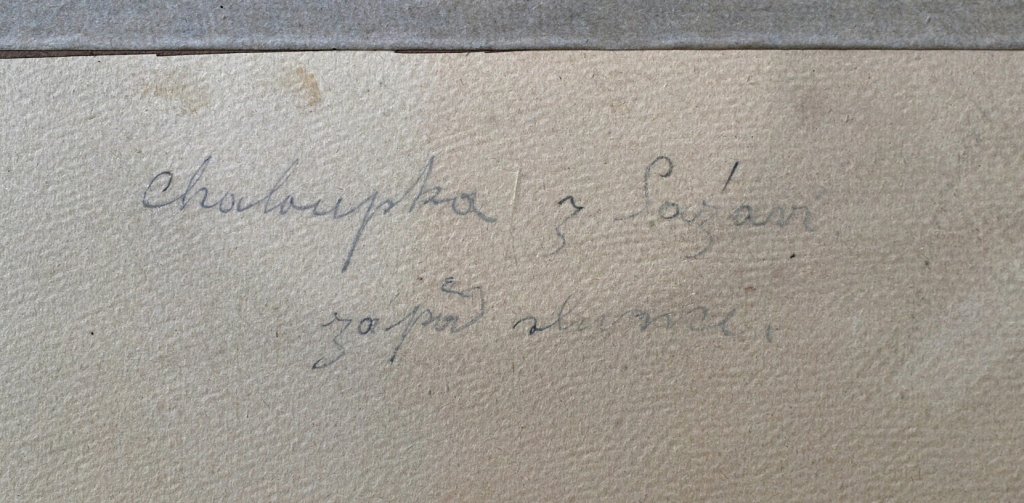 Chaloupka z Sázavi
západ slunce.